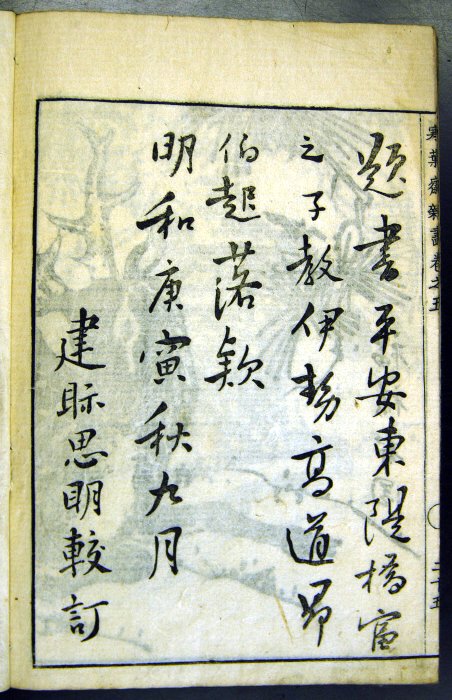 寒葉齋畫卷之五
二十五
題書平安東隄橋富
之子敎伊勢高道昂
伯起落欵
明和庚寅秋九月
建眎思明較訂